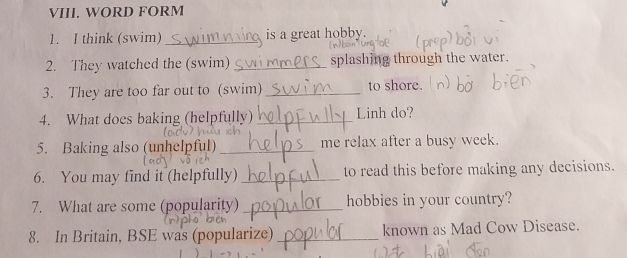 VIII. WORD FORM
1. I think (swim) swimming is a great hobby.
(prep) bởi vì
2. They watched the (swim) swimmers splashing through the water.
3. They are too far out to (swim) swim to shore. (n) bờ biển
4. What does baking (helpfully) helpfully Linh do?
(adv) hữu ích
5. Baking also (unhelpful) helps me relax after a busy week.
(adj) vô ích
6. You may find it (helpfully) helpful to read this before making any decisions.
7. What are some (popularity) popular hobbies in your country?
(n) phổ biến
8. In Britain, BSE was (popularize) popular known as Mad Cow Disease.